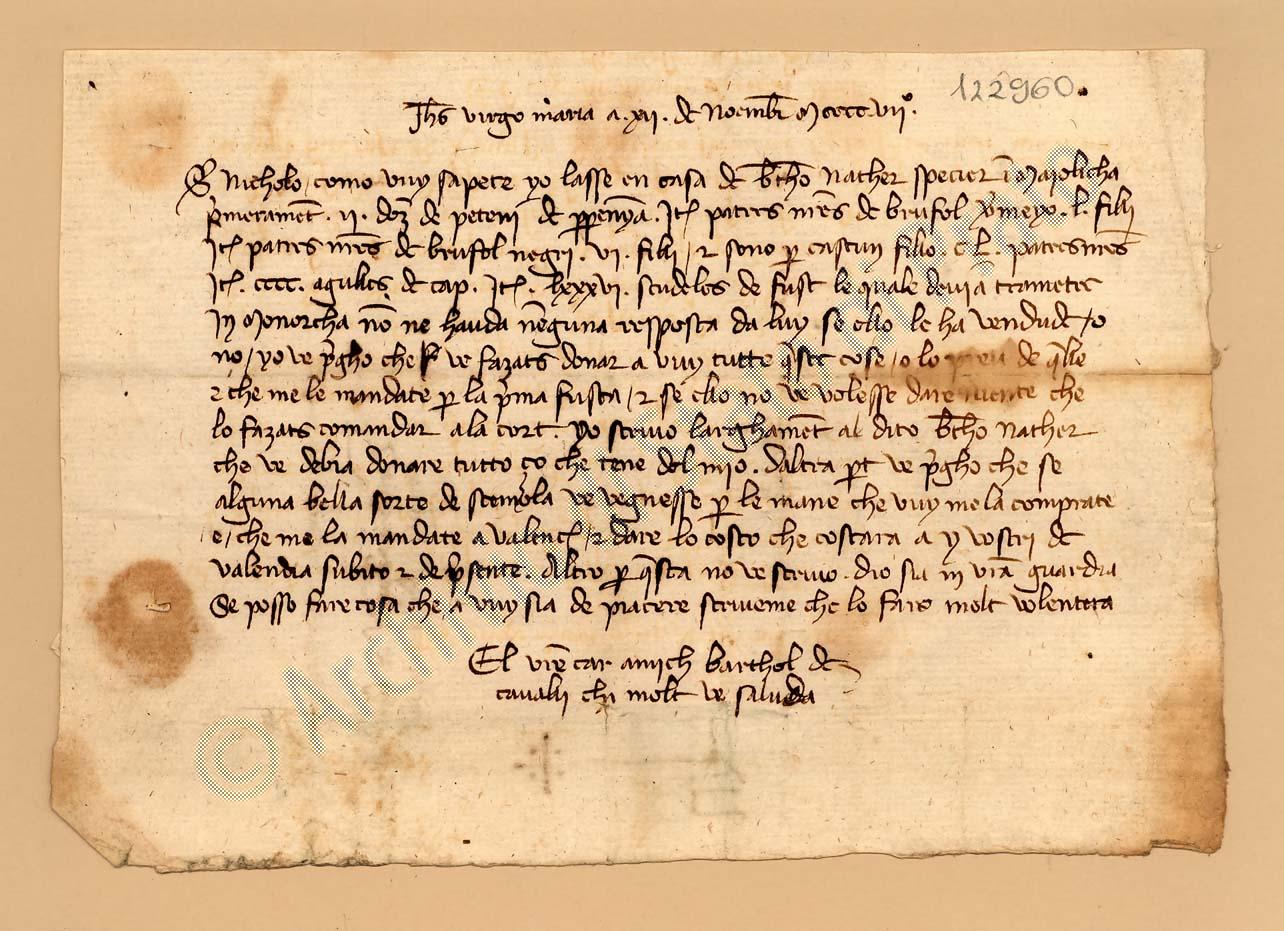 122960
Jhs virgo maria a .xii. de Noembr Mccccvii°.
S Nicholo, como vuy sapete yo lasse en casa de btho Nather specier i Maiolicha
pmerament .ii. doz de peteni de ppenya. Itē patres mrēs de brufol .l. filli
Itē patres mrēs de brufol negri .vi. filli, et sono p cascun fillo .c l. patresmrēs
Itē. cccc. agulles de cap. Itē. lxxxvi. scudeles de fust le quale devia trameter
In Menorcha nō ne hauda nēguna resposta da luy se ello le ha vendude, o
no, yo ve pgho che ve fazats donar a vuy tutte qste cose, o lo de qlle
e che me le mandate p la pma fusta, et se ello no ve volesse dare niente che
lo fazats comandar a la cort. Yo scrivo larghamēt al dito btho Nather
che ve debia donare tutto ço che tene del mio. daltra pt ve pgho che se
alguna bella sorte de ve vegnesse p le mane che vuy me la comprate
e, che me la mandate a valenc, et dare lo costo che costara a y vostri de
valencia subito et de psente. Altro p qsta no ve scrivo. dio sia in vrā guardia
Se posso fare cosa che a vuy sia de piacere scriveme che lo faro molt volentera
El vrē car amich barthol de
cavalli che molt ve saluda
© Archivio di Stato